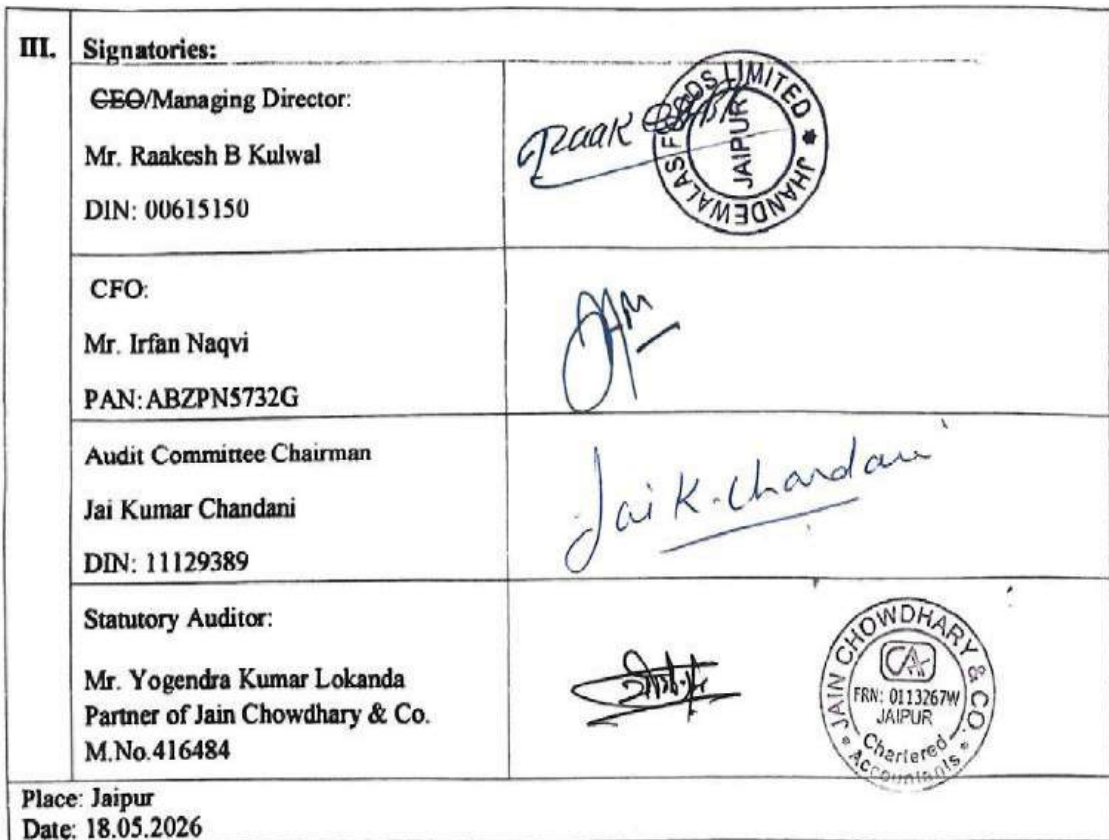 III. Signatories:
CEO/Managing Director:
Mr. Raakesh B Kulwal
DIN: 00615150
JHANDEWALAS FOODS LIMITED *
JAIPUR
CFO:
Mr. Irfan Naqvi
PAN: ABZPN5732G
Audit Committee Chairman
Jai Kumar Chandani
DIN: 11129389
Jai K. Chandani
Statutory Auditor:
Mr. Yogendra Kumar Lokanda
Partner of Jain Chowdhary & Co.
M.No.416484
* JAIN CHOWDHARY & CO. *
CA
FRN: 0113267W
JAIPUR
Chartered
Accountants
Place: Jaipur
Date: 18.05.2026